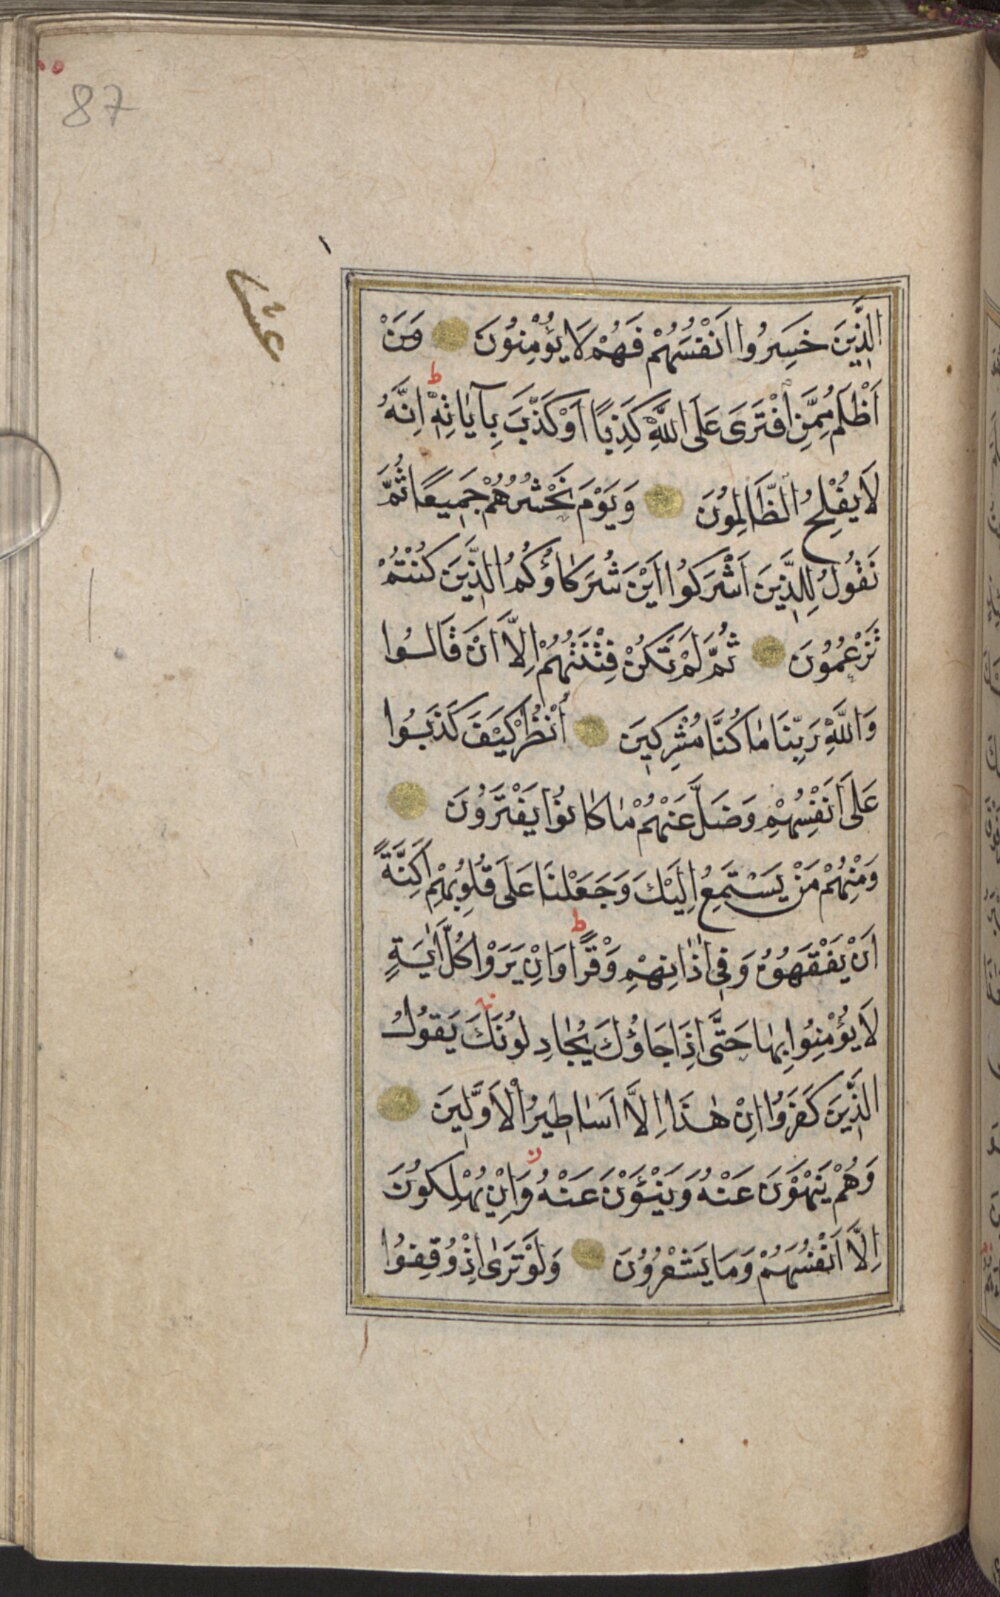 87
١
عشر
الَّذِينَ خَسِرُوا اَنْفُسَهُمْ فَهُمْ لَا يُؤْمِنُونَ وَمَنْ
اَظْلَمُ مِمَّنِ افْتَرَى عَلَى اللَّهِ كَذِبًا اَوْ كَذَّبَ بِآيَاتِهِ ط اِنَّهُ
لَا يُفْلِحُ الظَّالِمُونَ وَيَوْمَ نَحْشُرُهُمْ جَمِيعًا ثُمَّ
نَقُولُ لِلَّذِينَ اَشْرَكُوا اَيْنَ شُرَكَاؤُكُمُ الَّذِينَ كُنْتُمْ
تَزْعُمُونَ ثُمَّ لَمْ تَكُنْ فِتْنَتُهُمْ اِلَّا اَنْ قَالُوا
وَاللَّهِ رَبِّنَا مَا كُنَّا مُشْرِكِينَ اُنْظُرْ كَيْفَ كَذَبُوا
عَلَى اَنْفُسِهِمْ وَضَلَّ عَنْهُمْ مَا كَانُوا يَفْتَرُونَ
وَمِنْهُمْ مَنْ يَسْتَمِعُ اِلَيْكَ وَجَعَلْنَا عَلَى قُلُوبِهِمْ اَكِنَّةً
اَنْ يَفْقَهُوهُ وَفِي اٰذَانِهِمْ وَقْرًا ط وَاِنْ يَرَوْا كُلَّ اٰيَةٍ
لَا يُؤْمِنُوا بِهَا حَتَّى اِذَا جَاؤُكَ يُجَادِلُونَكَ يَقُولُ
الَّذِينَ كَفَرُوا اِنْ هٰذَا اِلَّا اَسَاطِيرُ الْاَوَّلِينَ
وَهُمْ يَنْهَوْنَ عَنْهُ وَيَنْـَٔوْنَ عَنْهُ وَاِنْ يُهْلِكُونَ
اِلَّا اَنْفُسَهُمْ وَمَا يَشْعُرُونَ وَلَوْ تَرَى اِذْ وُقِفُوا